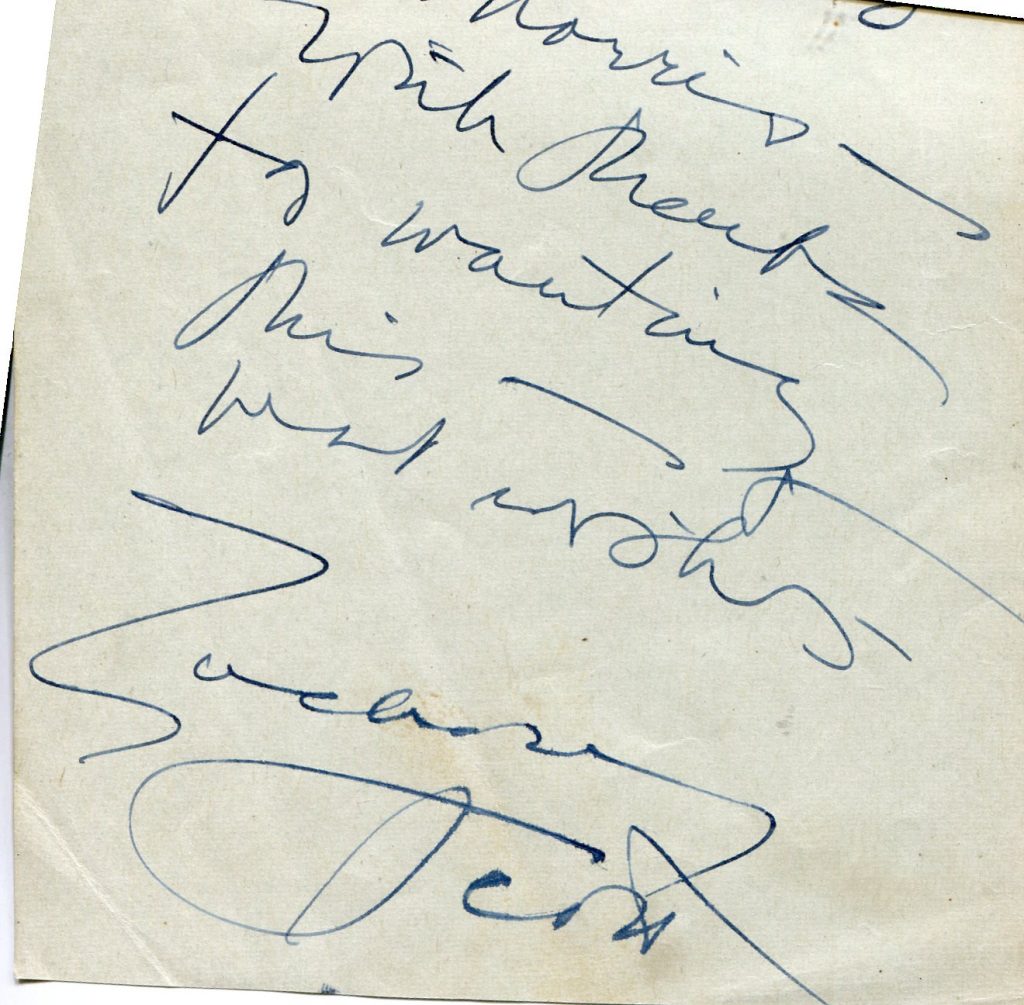 Norris —
With thanks
for wanting
this —
best wishes —
Zachary
Scott